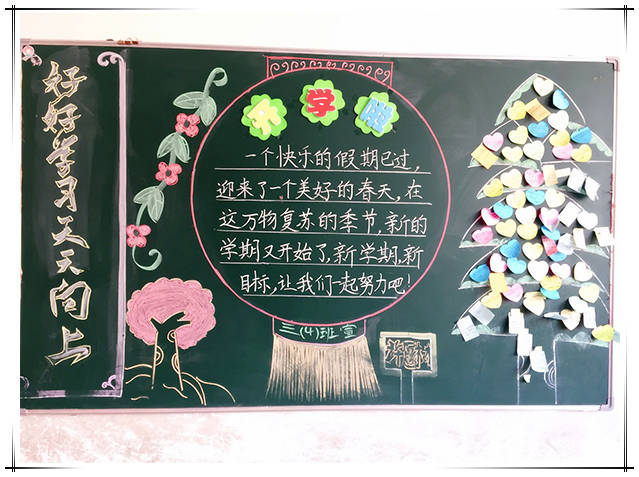 好好学习天天向上
开学啦
一个快乐的假期已过,
迎来了一个美好的春天,在
这万物复苏的季节,新的
学期又开始了,新学期,新
目标,让我们一起努力吧!
三(4)班宣
许愿树